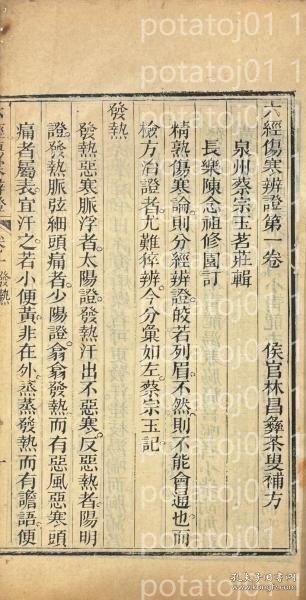 六經傷寒辨證第一卷
侯官林昌彝茶叟補方
泉州蔡宗玉茗莊輯
長樂陳念祖修園訂
精熟傷寒論則分經辨證皎若列眉不然則不能會通也而
檢方治證者尤難猝辨今分彙如左蔡宗玉記
發熱
發熱惡寒脈浮者太陽證發熱汗出不惡寒反惡熱者陽明
證發熱脈弦細頭痛者少陽證翕翕發熱而有惡風惡寒頭
痛者屬表宜汗之若小便黃非在外蒸蒸發熱而有譫語便
發熱
一
potatoj01
孔夫子旧书网
www.kongfz.com